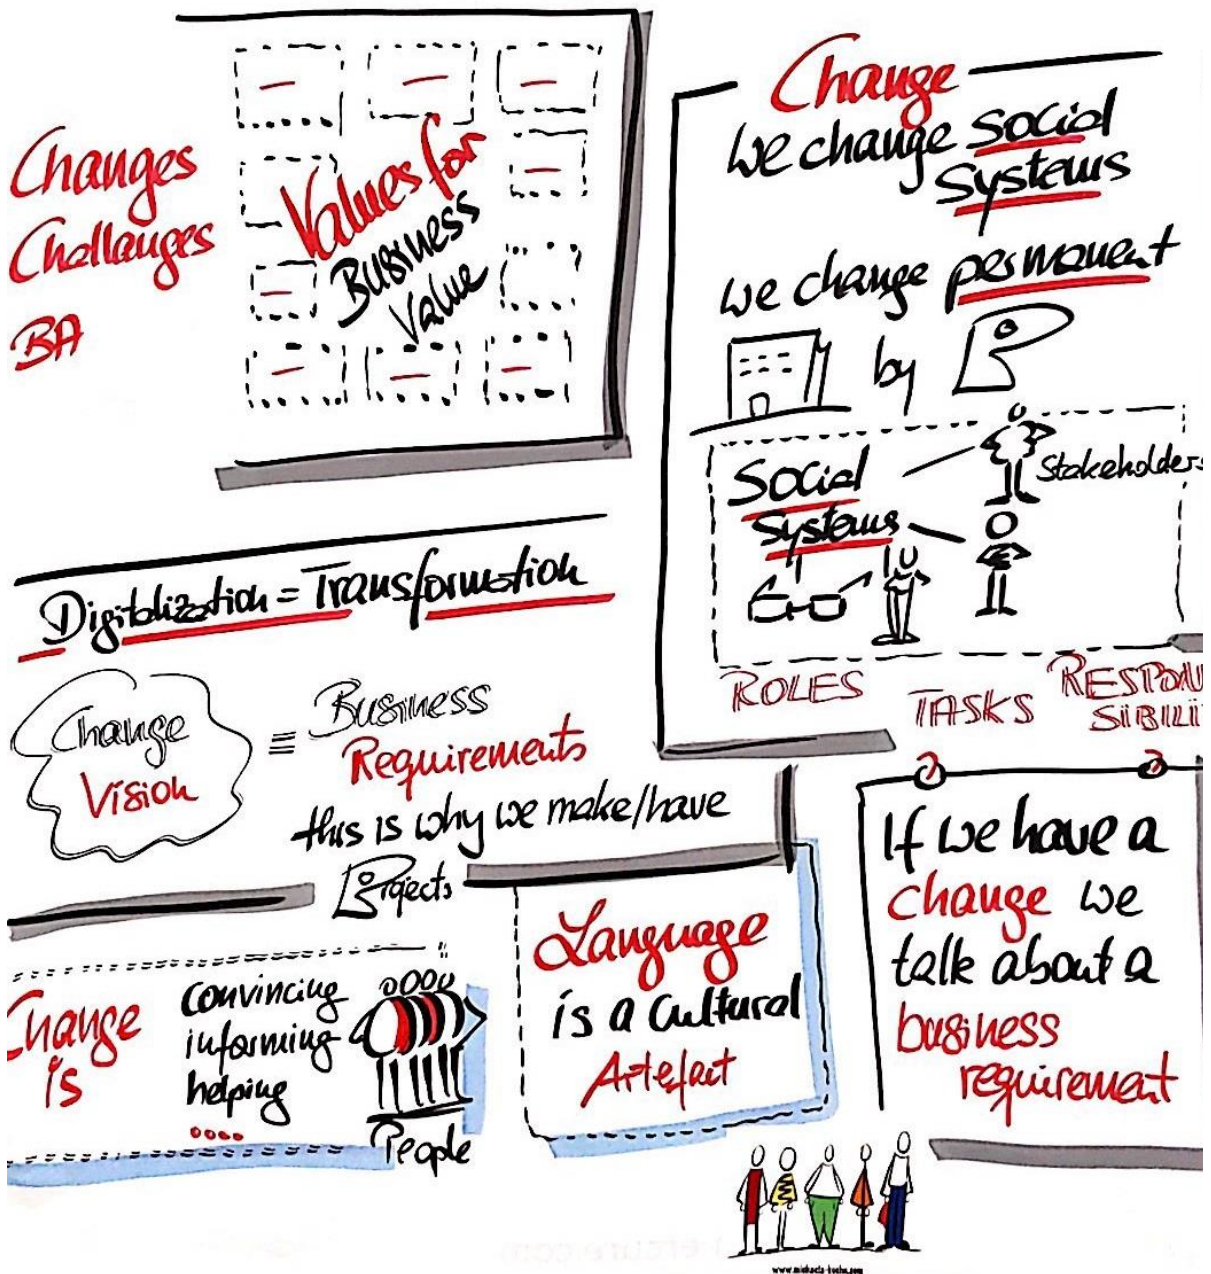 Changes
Challanges
BA
Values for
Business
Value
Change
we change Social
Systems
we change permanent
by
Social
Systems
Stakeholders
ROLES
TASKS
RESPON
SIBILI
Digitalization = Transformation
Change
Vision
≡ Business
Requirements
this is why we make/have
Projects
Change
is
convincing
informing
helping
....
People
Language
is a Cultural
Artefact
If we have a
change we
talk about a
business
requirement